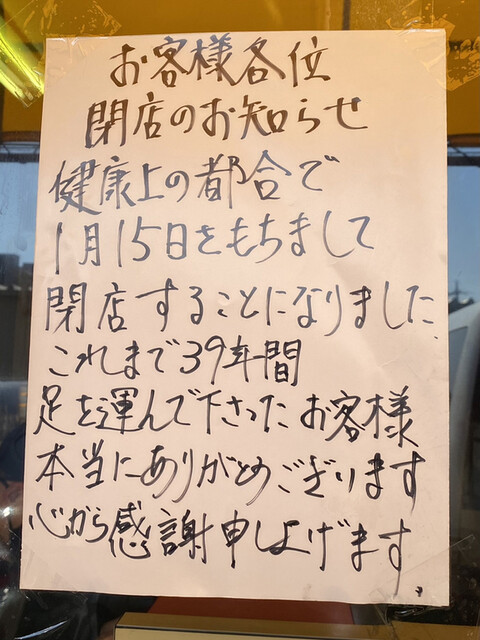 お客様各位
閉店のお知らせ
健康上の都合で
1月15日をもちまして
閉店することになりました
これまで39年間
足を運んで下さったお客様
本当にありがとめございます
心から感謝申し上げます